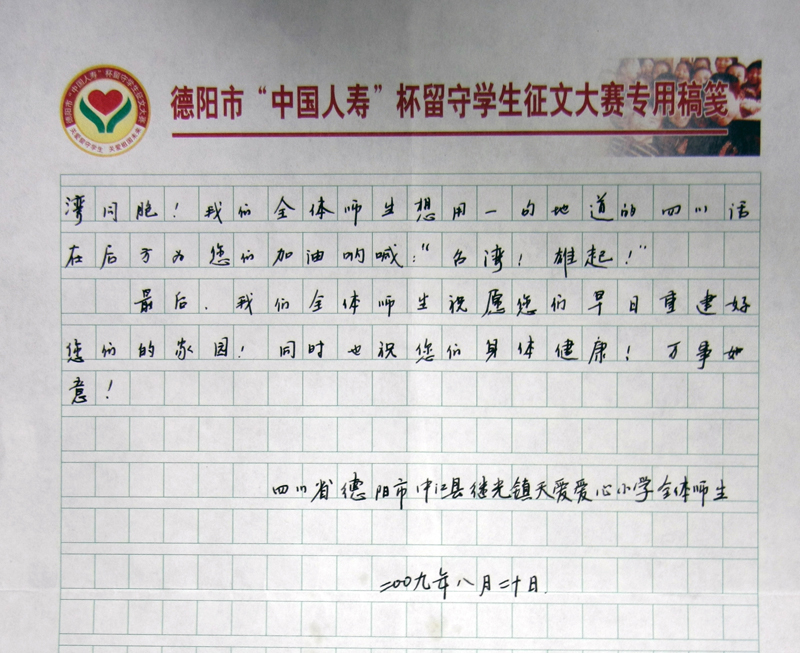 德阳市“中国人寿”杯留守学生征文大赛专用稿笺
德阳市“中国人寿”杯留守学生征文大赛
关爱留守学生 关爱祖国未来
湾同胞！我们全体师生想用一句地道的四川话
在后方为您们加油呐喊：“台湾！雄起！”
最后，我们全体师生祝愿您们早日重建好
您们的家园！同时也祝您们身体健康！万事如
意！
四川省德阳市中江县继光镇天爱爱心小学全体师生
二00九年八月二十日.